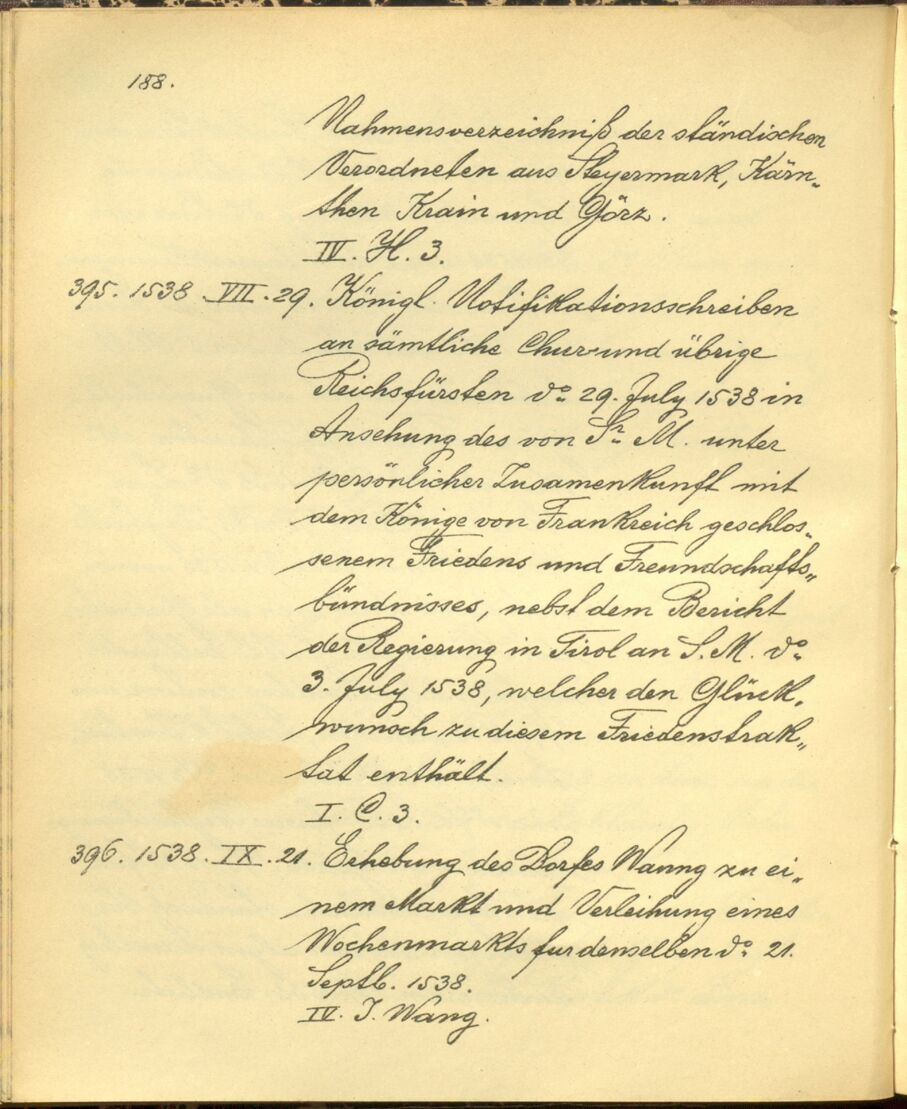 188.
Nahmensverzeichniß der ständischen
Verordneten aus Steyermark, Kärn„
then Krain und Görz.
IV. H. 3.
395. 1538. VII. 29. Königl. Notifikationsschreiben
an sämtliche Chur und übrige
Reichsfürsten do. 29. July 1538 in
Ansehung des von Sr. M. unter
persönlicher Zusamenkunft mit
dem Könige von Frankreich geschlos„
senem Friedens und Freundschafts„
bündnisses, nebst dem Bericht
der Regierung in Tirol an S. M. do.
3. July 1538, welcher den Glück„
wunsch zu diesem Friedenstrak„
tat enthält.
I. C. 3.
396. 1538. IX. 21. Erhebung des Dorfes Wanng zu ei„
nem Markt und Verleihung eines
Wochenmarkts fur denselben do. 21.
Septb. 1538.
IV. J. Wang.